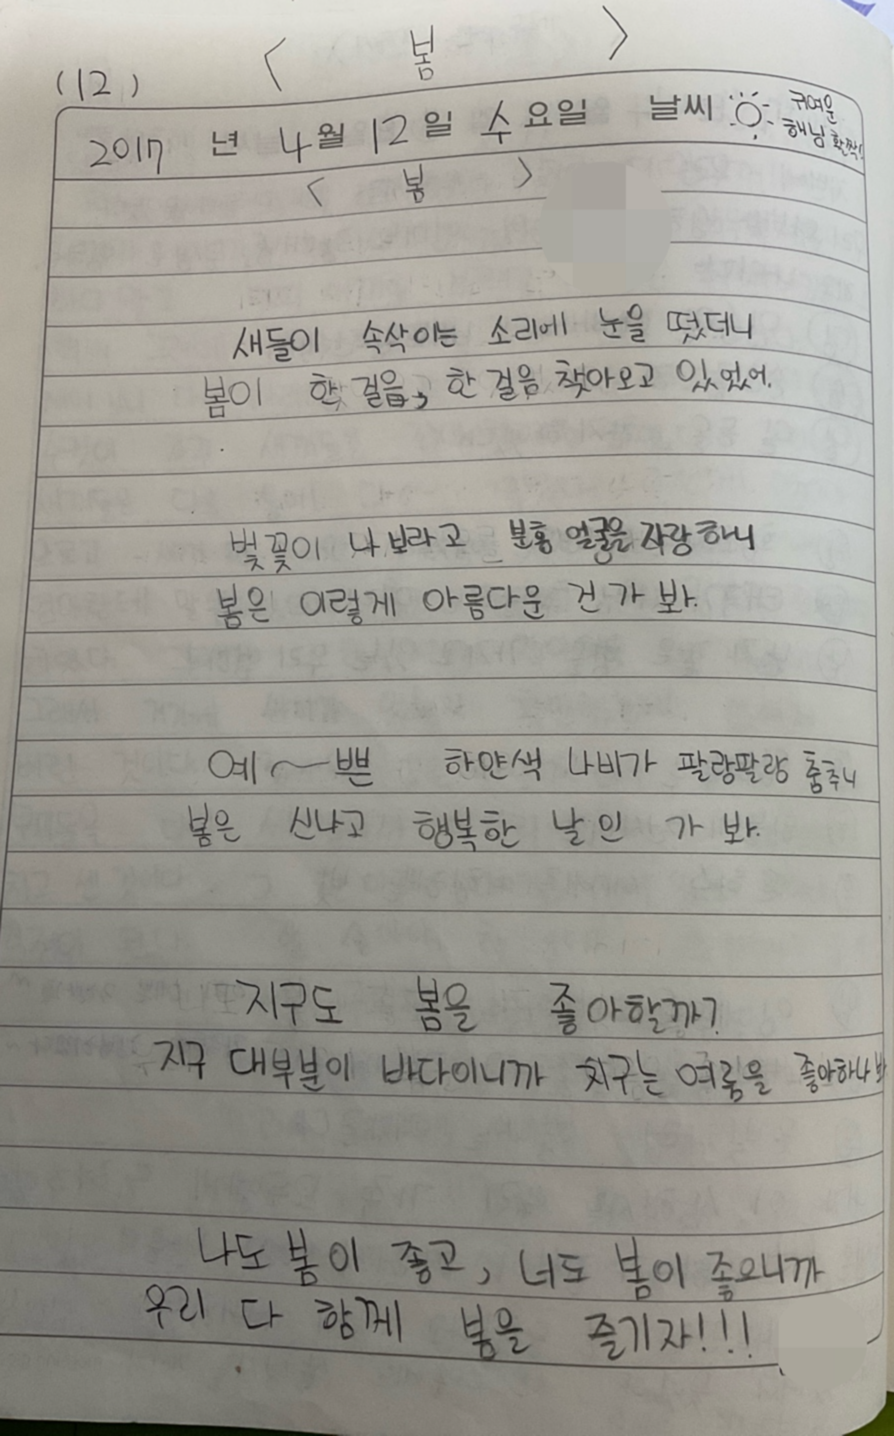 < 봄 >
(12)
2017 년 4월 12일 수요일 날씨 귀여운
해님 활짝!
< 봄 >
새들이 속삭이는 소리에 눈을 떴더니
봄이 한 걸음, 한 걸음 찾아오고 있었어.
벚꽃이 나 보라고 분홍 얼굴을 자랑하니
봄은 이렇게 아름다운 건 가 봐.
예~쁜 하얀색 나비가 팔랑팔랑 춤추니
봄은 신나고 행복한 날인 가 봐.
지구도 봄을 좋아할까?
지구 대부분이 바다이니까 지구는 여름을 좋아하나 봐
나도 봄이 좋고, 너도 봄이 좋으니까
우리 다 함께 봄을 즐기자!!!